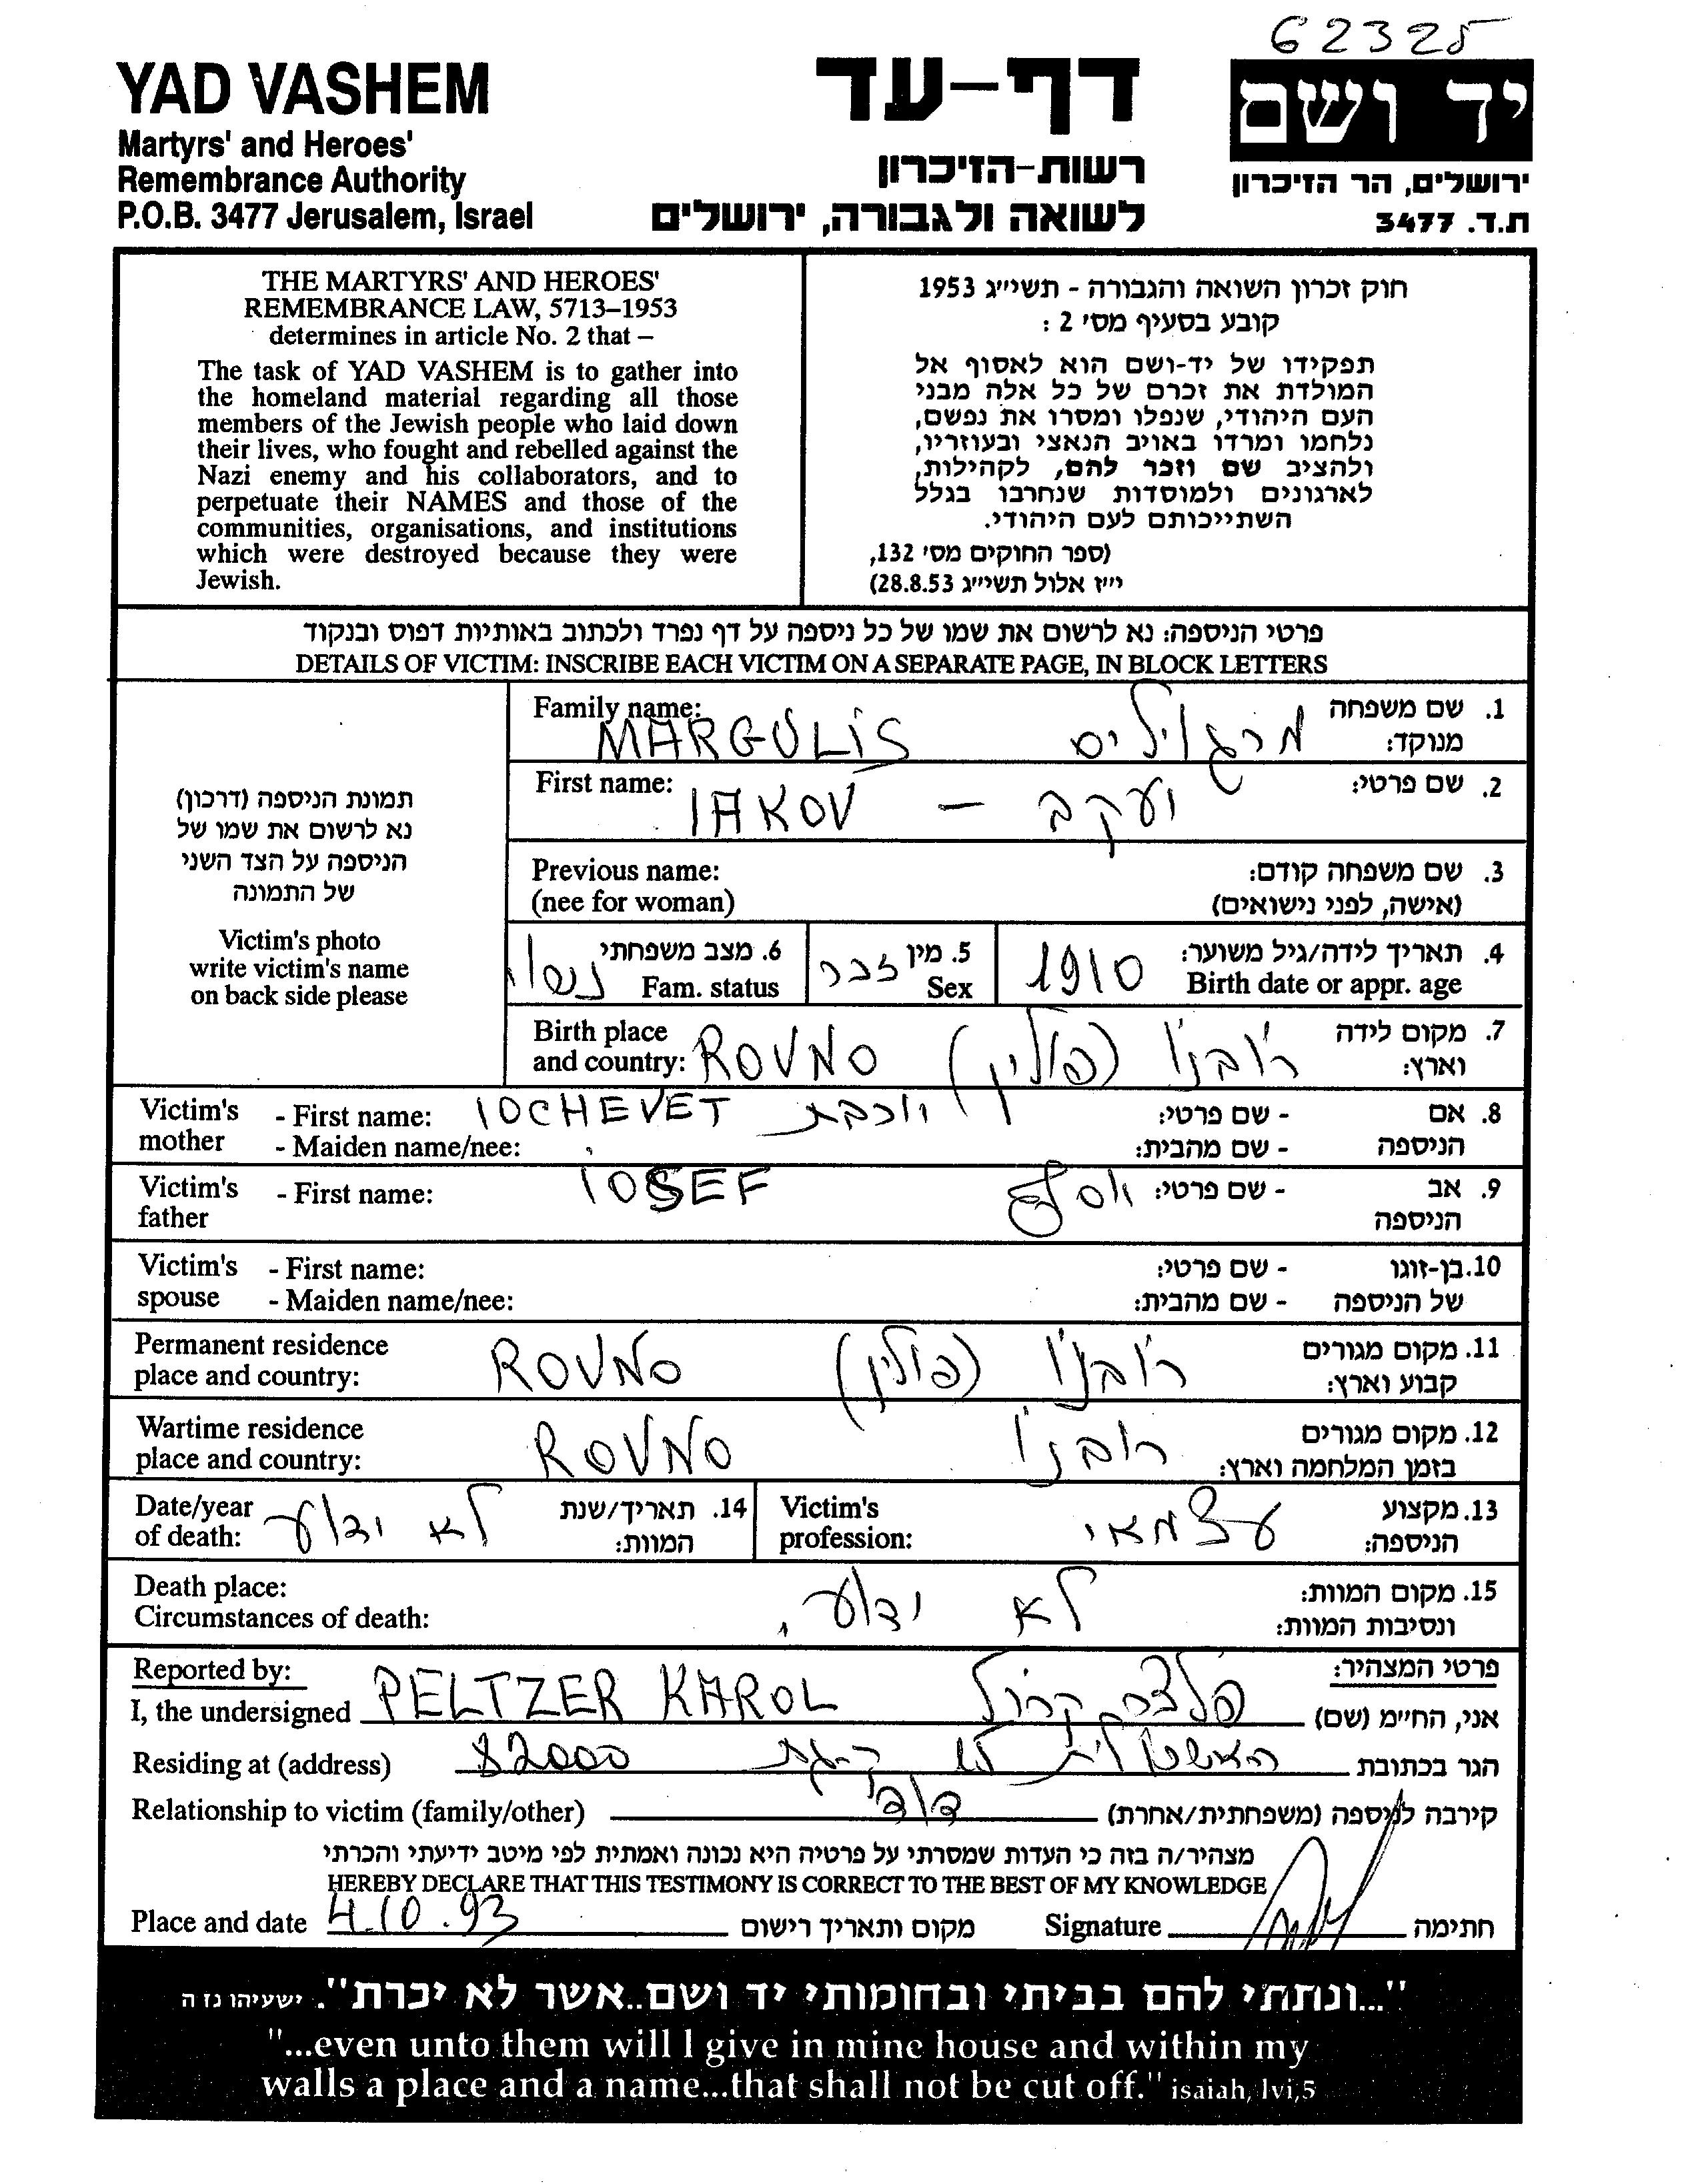 62325
YAD VASHEM
Martyrs' and Heroes'
Remembrance Authority
P.O.B. 3477 Jerusalem, Israel
דף-עד
רשות-הזיכרון
לשואה ולגבורה, ירושלים
יד ושם
ירושלים, הר הזיכרון
ת.ד. 3477
THE MARTYRS' AND HEROES'
REMEMBRANCE LAW, 5713–1953
determines in article No. 2 that –
The task of YAD VASHEM is to gather into
the homeland material regarding all those
members of the Jewish people who laid down
their lives, who fought and rebelled against the
Nazi enemy and his collaborators, and to
perpetuate their NAMES and those of the
communities, organisations, and institutions
which were destroyed because they were
Jewish.
חוק זכרון השואה והגבורה - תשי״ג 1953
קובע בסעיף מס' 2 :
תפקידו של יד-ושם הוא לאסוף אל
המולדת את זכרם של כל אלה מבני
העם היהודי, שנפלו ומסרו את נפשם,
נלחמו ומרדו באויב הנאצי ובעוזריו,
ולהציב שם וזכר להם, לקהילות,
לארגונים ולמוסדות שנחרבו בגלל
השתייכותם לעם היהודי.
(ספר החוקים מס' 132,
י״ז אלול תשי״ג 28.8.53)
פרטי הניספה: נא לרשום את שמו של כל ניספה על דף נפרד ולכתוב באותיות דפוס ובנקוד
DETAILS OF VICTIM: INSCRIBE EACH VICTIM ON A SEPARATE PAGE, IN BLOCK LETTERS
תמונת הניספה (דרכון)
נא לרשום את שמו של
הניספה על הצד השני
של התמונה
Victim's photo
write victim's name
on back side please
Family name: MARGULIS מרגוליס 1. שם משפחה
מנוקד:
First name: IAKOV – יעקב 2. שם פרטי:
Previous name: 3. שם משפחה קודם:
(nee for woman) (אישה, לפני נישואים)
6. מצב משפחתי נשוי 5. מין זכר 4. תאריך לידה/גיל משוער:
Fam. status Sex 1910 Birth date or appr. age
Birth place ROVNO רובנו (פולין) 7. מקום לידה
and country: וארץ:
Victim's - First name: IOCHEVET יוכבת - שם פרטי: 8. אם
mother - Maiden name/nee: - שם מהבית: הניספה
Victim's - First name: IOSEF יוסף - שם פרטי: 9. אב
father הניספה
Victim's - First name: - שם פרטי: 10. בן-זוגו
spouse - Maiden name/nee: - שם מהבית: של הניספה
Permanent residence ROVNO רובנו (פולין) 11. מקום מגורים
place and country: קבוע וארץ:
Wartime residence ROVNO רובנו 12. מקום מגורים
place and country: בזמן המלחמה וארץ:
Date/year לא ידוע 14. תאריך/שנת Victim's עצמאי 13. מקצוע
of death: המוות: profession: הניספה:
Death place: לא ידוע. 15. מקום המוות:
Circumstances of death: ונסיבות המוות:
Reported by: פרטי המצהיר:
I, the undersigned PELTZER KAROL פלצר קרול אני, החי״מ (שם)
Residing at (address) 82000 הגר בכתובת
Relationship to victim (family/other) קירבה לניספה (משפחתית/אחרת)
מצהיר/ה בזה כי העדות שמסרתי על פרטיה היא נכונה ואמתית לפי מיטב ידיעתי והכרתי
HEREBY DECLARE THAT THIS TESTIMONY IS CORRECT TO THE BEST OF MY KNOWLEDGE
Place and date 4.10.93 מקום ותאריך רישום Signature חתימה
"...ונתתי להם בביתי ובחומותי יד ושם..אשר לא יכרת". ישעיהו נז ה
"...even unto them will I give in mine house and within my
walls a place and a name...that shall not be cut off." isaiah, lvi,5